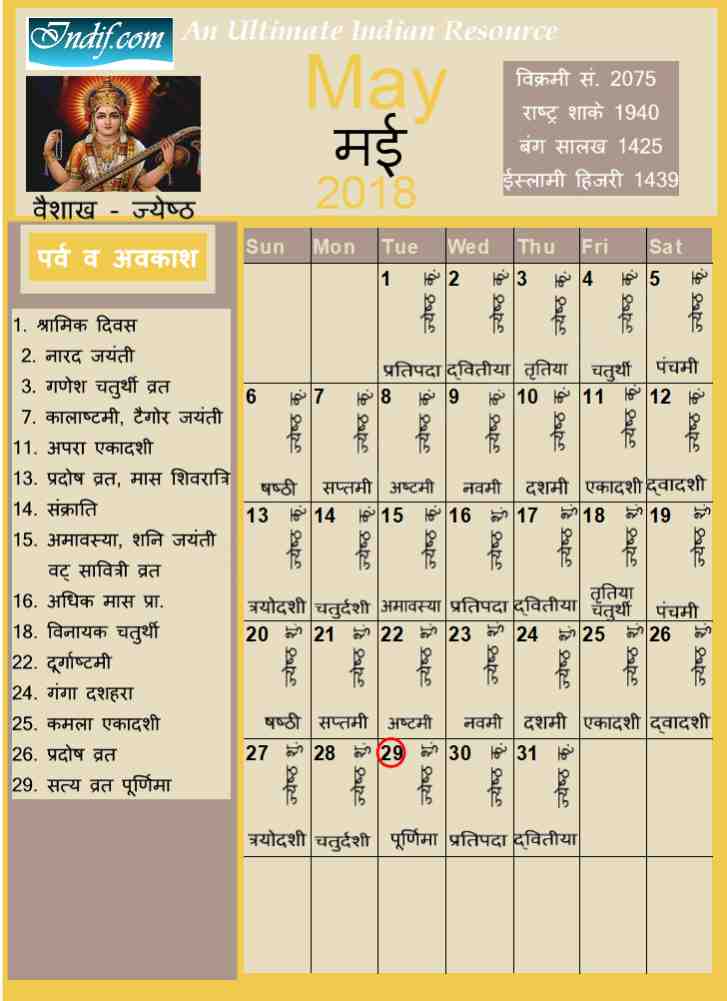 Indif.com
An Ultimate Indian Resource
May
मई
2018
विक्रमी सं. 2075
राष्ट्र शाके 1940
बंग सालख 1425
ईस्लामी हिजरी 1439
वैशाख - ज्येष्ठ
पर्व व अवकाश
1. श्रामिक दिवस
2. नारद जयंती
3. गणेश चतुर्थी व्रत
7. कालाष्टमी, टैगोर जयंती
11. अपरा एकादशी
13. प्रदोष व्रत, मास शिवरात्रि
14. संक्राति
15. अमावस्या, शनि जयंती
वट् सावित्री व्रत
16. अधिक मास प्रा.
18. विनायक चतुर्थी
22. दूर्गाष्टमी
24. गंगा दशहरा
25. कमला एकादशी
26. प्रदोष व्रत
29. सत्य व्रत पूर्णिमा
Sun Mon Tue Wed Thu Fri Sat
1 ज्येष्ठ कृ. 2 ज्येष्ठ कृ. 3 ज्येष्ठ कृ. 4 ज्येष्ठ कृ. 5 ज्येष्ठ कृ.
प्रतिपदा द्वितीया तृतिया चतुर्थी पंचमी
6 ज्येष्ठ कृ. 7 ज्येष्ठ कृ. 8 ज्येष्ठ कृ. 9 ज्येष्ठ कृ. 10 ज्येष्ठ कृ. 11 ज्येष्ठ कृ. 12 ज्येष्ठ कृ.
षष्ठी सप्तमी अष्टमी नवमी दशमी एकादशी द्वादशी
13 ज्येष्ठ कृ. 14 ज्येष्ठ कृ. 15 ज्येष्ठ कृ. 16 ज्येष्ठ शु. 17 ज्येष्ठ शु. 18 ज्येष्ठ शु. 19 ज्येष्ठ शु.
त्रयोदशी चतुर्दशी अमावस्या प्रतिपदा द्वितीया तृतिया चतुर्थी पंचमी
20 ज्येष्ठ शु. 21 ज्येष्ठ शु. 22 ज्येष्ठ शु. 23 ज्येष्ठ शु. 24 ज्येष्ठ शु. 25 ज्येष्ठ शु. 26 ज्येष्ठ शु.
षष्ठी सप्तमी अष्टमी नवमी दशमी एकादशी द्वादशी
27 ज्येष्ठ शु. 28 ज्येष्ठ शु. 29 ज्येष्ठ शु. 30 ज्येष्ठ कृ. 31 ज्येष्ठ कृ.
त्रयोदशी चतुर्दशी पूर्णिमा प्रतिपदा द्वितीया